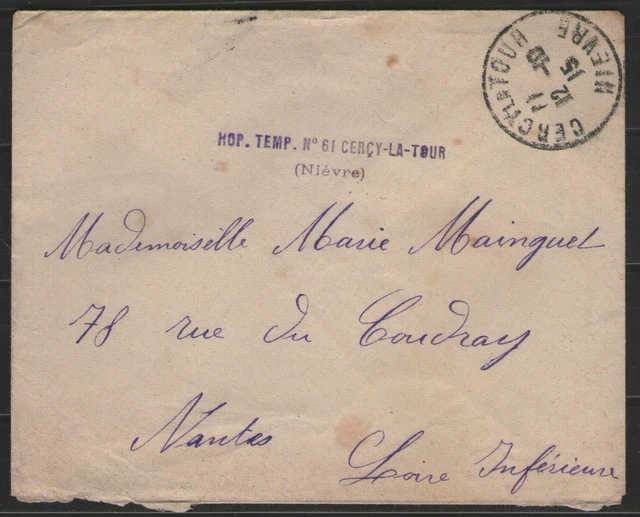 CERCY-LA-TOUR
11
12 -10
15
NIEVRE
HOP. TEMP. N° 61 CERÇY-LA-TOUR
(Nièvre)
Mademoiselle Marie Mainguet
78 rue du Coudray
Nantes
Loire Inférieure